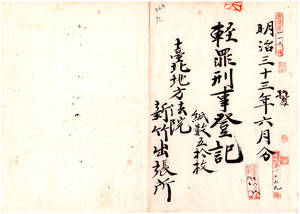 明治三十三年六月分
輕罪刑事登記
紙數五拾枚
臺北地方法院
新竹出張所